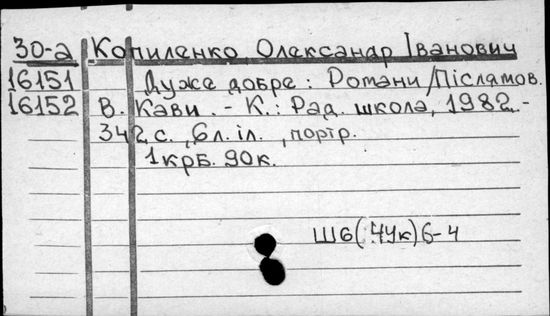 30-а Копиленко Олександр Іванович
16151 Дуже добре: Романи/Післямов.
16152 В. Кави. - К.: Рад. школа, 1982.-
342 с., 6л. іл., портр.
1крб. 90к.
Ш6(4Ук)6-4